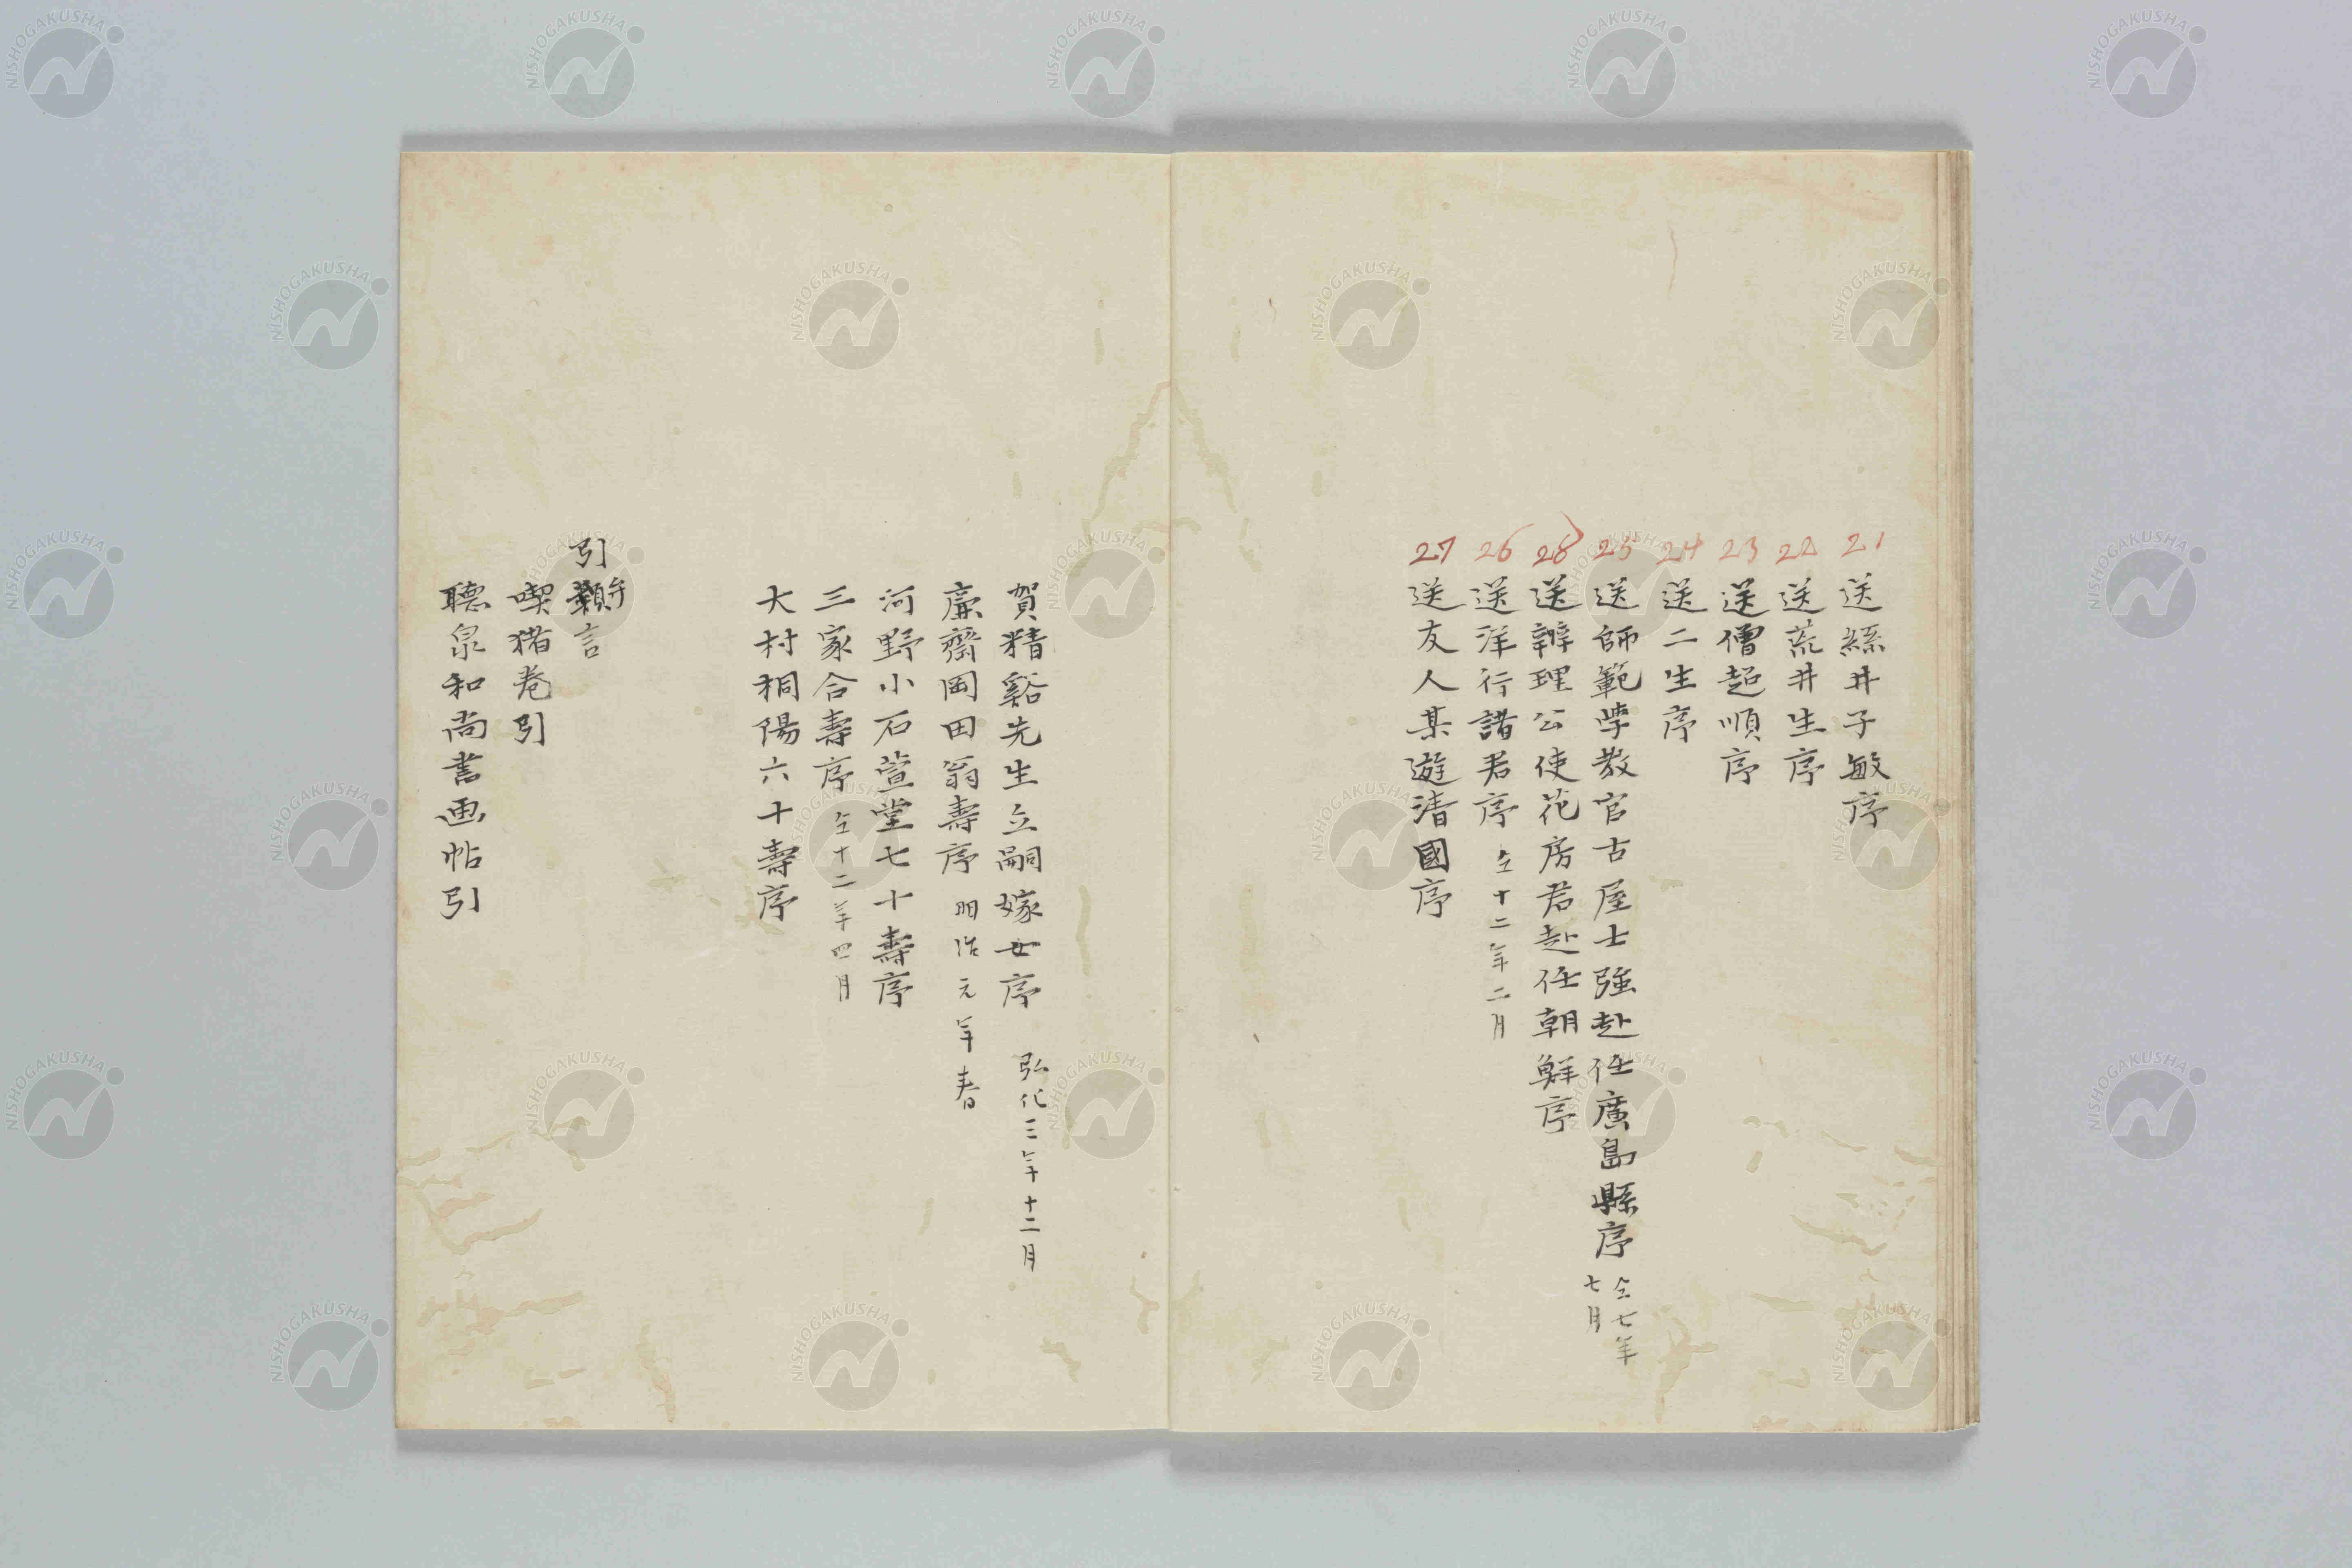 21 送絲井子敏序
22 送荒井生序
23 送僧超順序
24 送二生序
25 送師範学教官古屋士強赴任廣島縣序 仝七年七月
28 送辨理公使花房君赴任朝鮮序
26 送洋行諸君序 仝十二年二月
27 送友人某遊清國序
賀精谿先生立嗣嫁女序 弘化三年十二月
廉齋岡田翁壽序 明治元年春
河野小石萱堂七十壽序
三家合壽序 仝十二年四月
大村桐陽六十壽序
引 弁言
喫猪巻引
聴泉和尚書画帖引
NISHOGAKUSHA